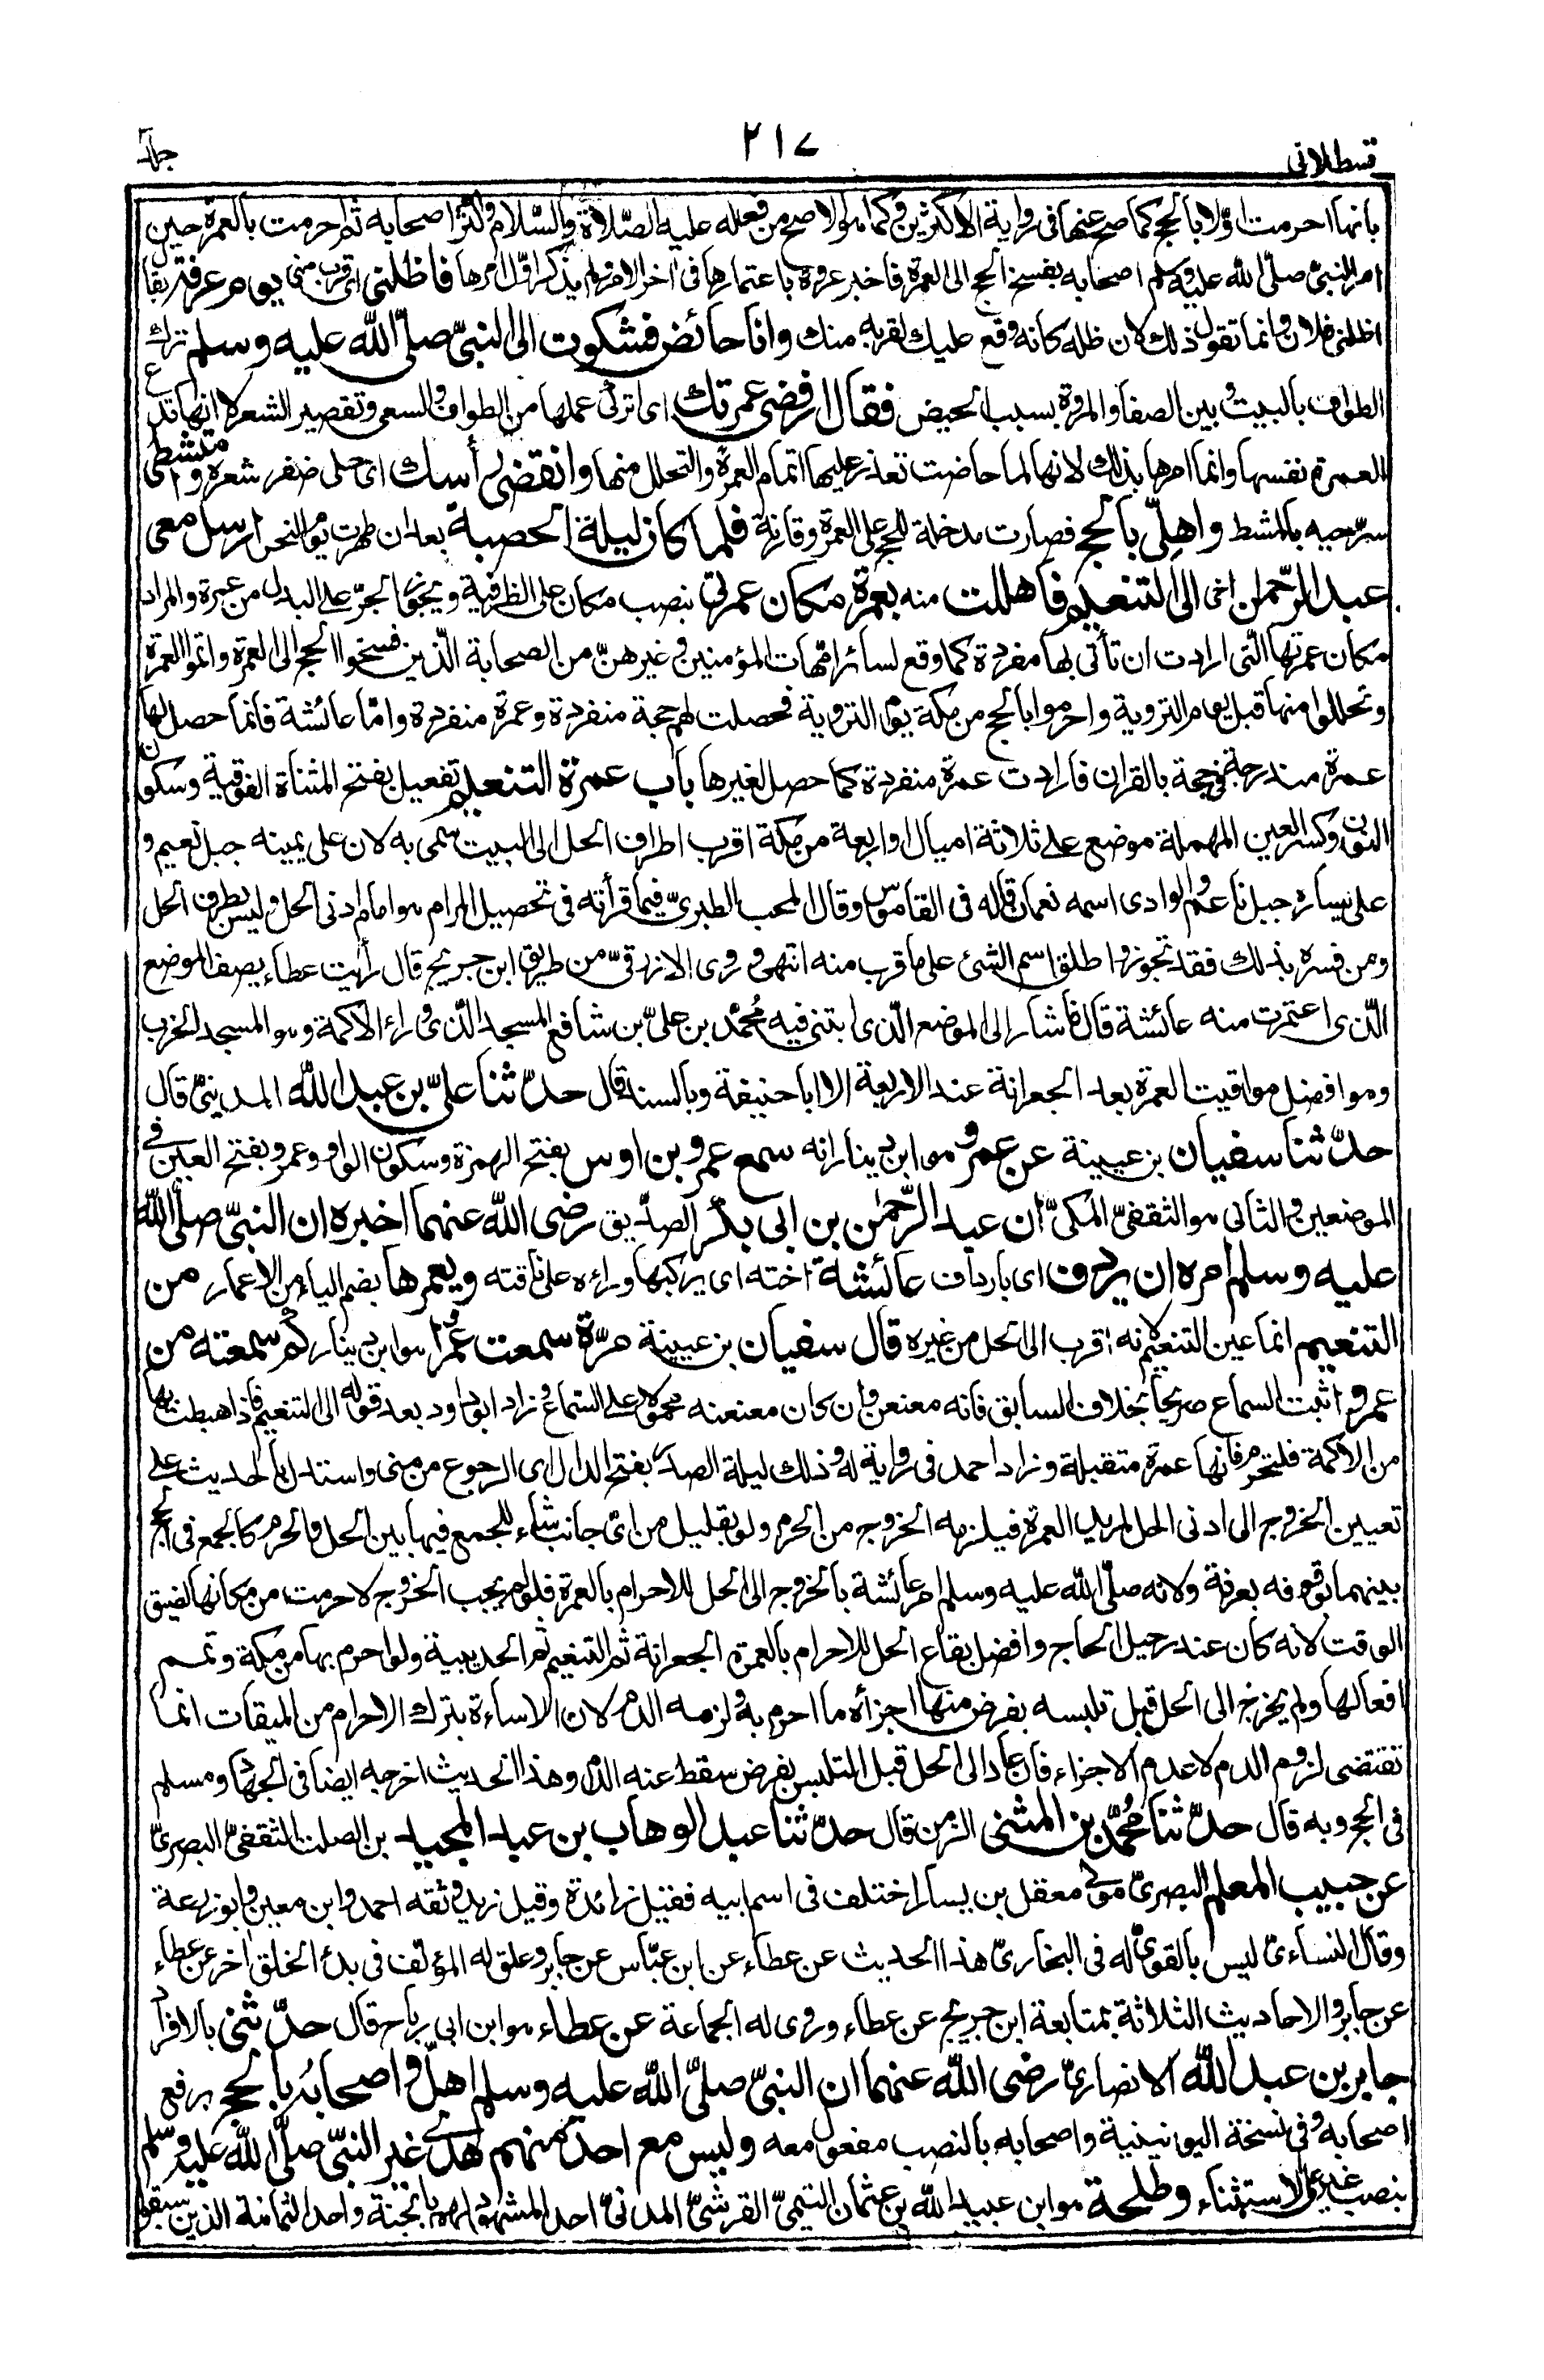 قسطلانی ٢١٧ جلد
بانها احرمت اوّلا بالحج كما صح عنها فی رواية الاكثرين وكما هو الاصح من فعله عليه الصّلاة والسّلام واكثر اصحابه ثم احرمت بالعمرة حين
امر النبیّ صلّی الله عليه وسلم اصحابه بفسخ الحج الی العمرة فاخبر عروة باعتمارها فی اخر الامر ولم يذكر اوّل امرها فاظلنی ای قرب منی يوم عرفة يقا
اظلنی فلان وانما تقول ذلك لان ظله كانه وقع عليك لقربه منك وانا حائض فشكوت الی النبیّ صلّی الله عليه وسلم ترك
الطواف بالبيت وبين الصفا والمروة بسبب الحيض فقال ارفضی عمرتك ای اتركی عملها من الطواف والسعی وتقصير الشعر لا انها تدع
العمرة نفسها وانما امرها بذلك لانها لما حاضت تعذر عليها اتمام العمرة والتحلل منها وانقضی رأسك ای حلی ضفر شعره وامتشطی
سرّحيه بالمشط واهلّی بالحج فصارت مدخلة للحج علی العمرة وقارنة فلما كان ليلة الحصبة بعد ان طهرت يوم النحر ارسل معی
عبد الرّحمن اخی الی التنعيم فاهللت منه بعمرة مكان عمرتی بنصب مكان علی الظرفية ويجوز الجرّ علی البدل من عمرة والمراد
مكان عمرتها الّتی ارادت ان تأتی بها مفردة كما وقع لسائر امّهات المؤمنين وغيرهنّ من الصحابة الّذين فسخوا الحج الی العمرة واتموا العمرة
وتحللوا منها قبل يوم التروية واحرموا بالحج من مكة يوم التروية فحصلت لهم حجة منفردة وعمرة منفردة وامّا عائشة فانما حصل لها
عمرة مندرجة فی حجة بالقران فارادت عمرة منفردة كما حصل لغيرها باب عمرة التنعيم تفعيل بفتح المثناة الفوقية وسكون
النون وكسر العين المهملة موضع علی ثلاثة اميال او اربعة من مكة اقرب اطراف الحل الی البيت سمی به لان علی يمينه جبل نعيم و
علی يساره جبل ناعم والوادی اسمه نعمان قاله فی القاموس وقال المحب الطبریّ فيما قرأته فی تحصيل المرام هو امام ادنی الحل وليس بطرف الحل
ومن فسره بذلك فقد تجوز واطلق اسم الشئ علی ما قرب منه انتهی وروی الازرقیّ من طريق ابن جريج قال رأيت عطاء يصف الموضع
الّذی اعتمرت منه عائشة قال فاشار الی الموضع الّذی ابتنی فيه محمّد بن علیّ بن شافع المسجد الّذی وراء الاكمة وهو المسجد الخرب
وهو افضل مواقيت العمرة بعد الجعرانة عند الاربعة الا ابا حنيفة وبالسند قال حدّثنا علیّ بن عبد الله المدينیّ قال
حدّثنا سفيان بن عيينة عن عمرو هو ابن دينار انه سمع عمرو بن اوس بفتح الهمزة وسكون الواو وعمرو بفتح العين فی
الموضعين والثانی هو الثقفیّ المكیّ ان عبد الرّحمن بن ابی بكر الصدّيق رضی الله عنهما اخبره ان النبیّ صلّی الله
عليه وسلم امره ان يردف ای بارداف عائشة اخته ای يركبها وراءه علی ناقته ويعمرها بضم الياء من الاعمار من
التنعيم انما عين التنعيم لانه اقرب الی الحل من غيره قال سفيان بن عيينة مرّة سمعت عمرا هو ابن دينار كم سمعته من
عمرو اثبت السماع صريحا بخلاف السابق فانه معنعن وان كان معنعنه محمولا علی السّماع وزاد ابو داود بعد قوله الی التنعيم فاذا هبطت بها
من الاكمة فلتحرم فانها عمرة متقبلة وزاد احمد فی رواية له وذلك ليلة الصدر بفتح الدال ای الرجوع من منی واستدل بالحديث علی
تعيين الخروج الی ادنی الحل لمريد العمرة فيلزمه الخروج من الحرم ولو بقليل من ای جانب شاء للجمع فيها بين الحل والحرم كالجمع فی الحج
بينهما بوقوفه بعرفة ولانه صلّی الله عليه وسلم امر عائشة بالخروج الی الحل للاحرام بالعمرة فلو لم يجب الخروج لاحرمت من مكانها لضيق
الوقت لانه كان عند رحيل الحاج وافضل بقاع الحل للاحرام بالعمرة الجعرانة ثم التنعيم ثم الحديبية ولو احرم بها من مكة وتمم
افعالها ولم يخرج الی الحل قبل تلبسه بفرض منها اجزأه ما احرم به ولزمه الدم لان الاساءة بترك الاحرام من الميقات انما
تقتضی لزوم الدم لا عدم الاجزاء فان عاد الی الحل قبل التلبس بفرض سقط عنه الدم وهذا الحديث اخرجه ايضا فی الجهاد ومسلم
فی الحج وبه قال حدّثنا محمّد بن المثنی الزمن قال حدّثنا عبد الوهاب بن عبد المجيد بن الصلت الثقفیّ البصریّ
عن حبيب المعلم البصریّ مولی معقل بن يسار اختلف فی اسم ابيه فقيل زائدة وقيل زيد وثقه احمد وابن معين وابو زرعة
وقال النساءیّ ليس بالقوی له فی البخاریّ هذا الحديث عن عطاء عن ابن عبّاس عن جابر وعلق له المؤلف فی بدء الخلق اخر عن عطاء
عن جابر والاحاديث الثلاثة بمتابعة ابن جريج عن عطاء وروی له الجماعة عن عطاء هو ابن ابی رباح قال حدّثنی بالافراد
جابر بن عبد الله الانصاریّ رضی الله عنهما ان النبیّ صلّی الله عليه وسلم اهلّ واصحابه بالحج برفع
اصحابه وفی نسخة اليونينية واصحابه بالنصب مفعول معه وليس مع احد منهم هدی غير النبیّ صلّی الله عليه وسلّم
بنصب غير علی الاستثناء وطلحة هو ابن عبيد الله بن عثمان التيمیّ القرشیّ المدنیّ احد المشهود لهم بالجنة واحد الثمانية الذين سبقوا